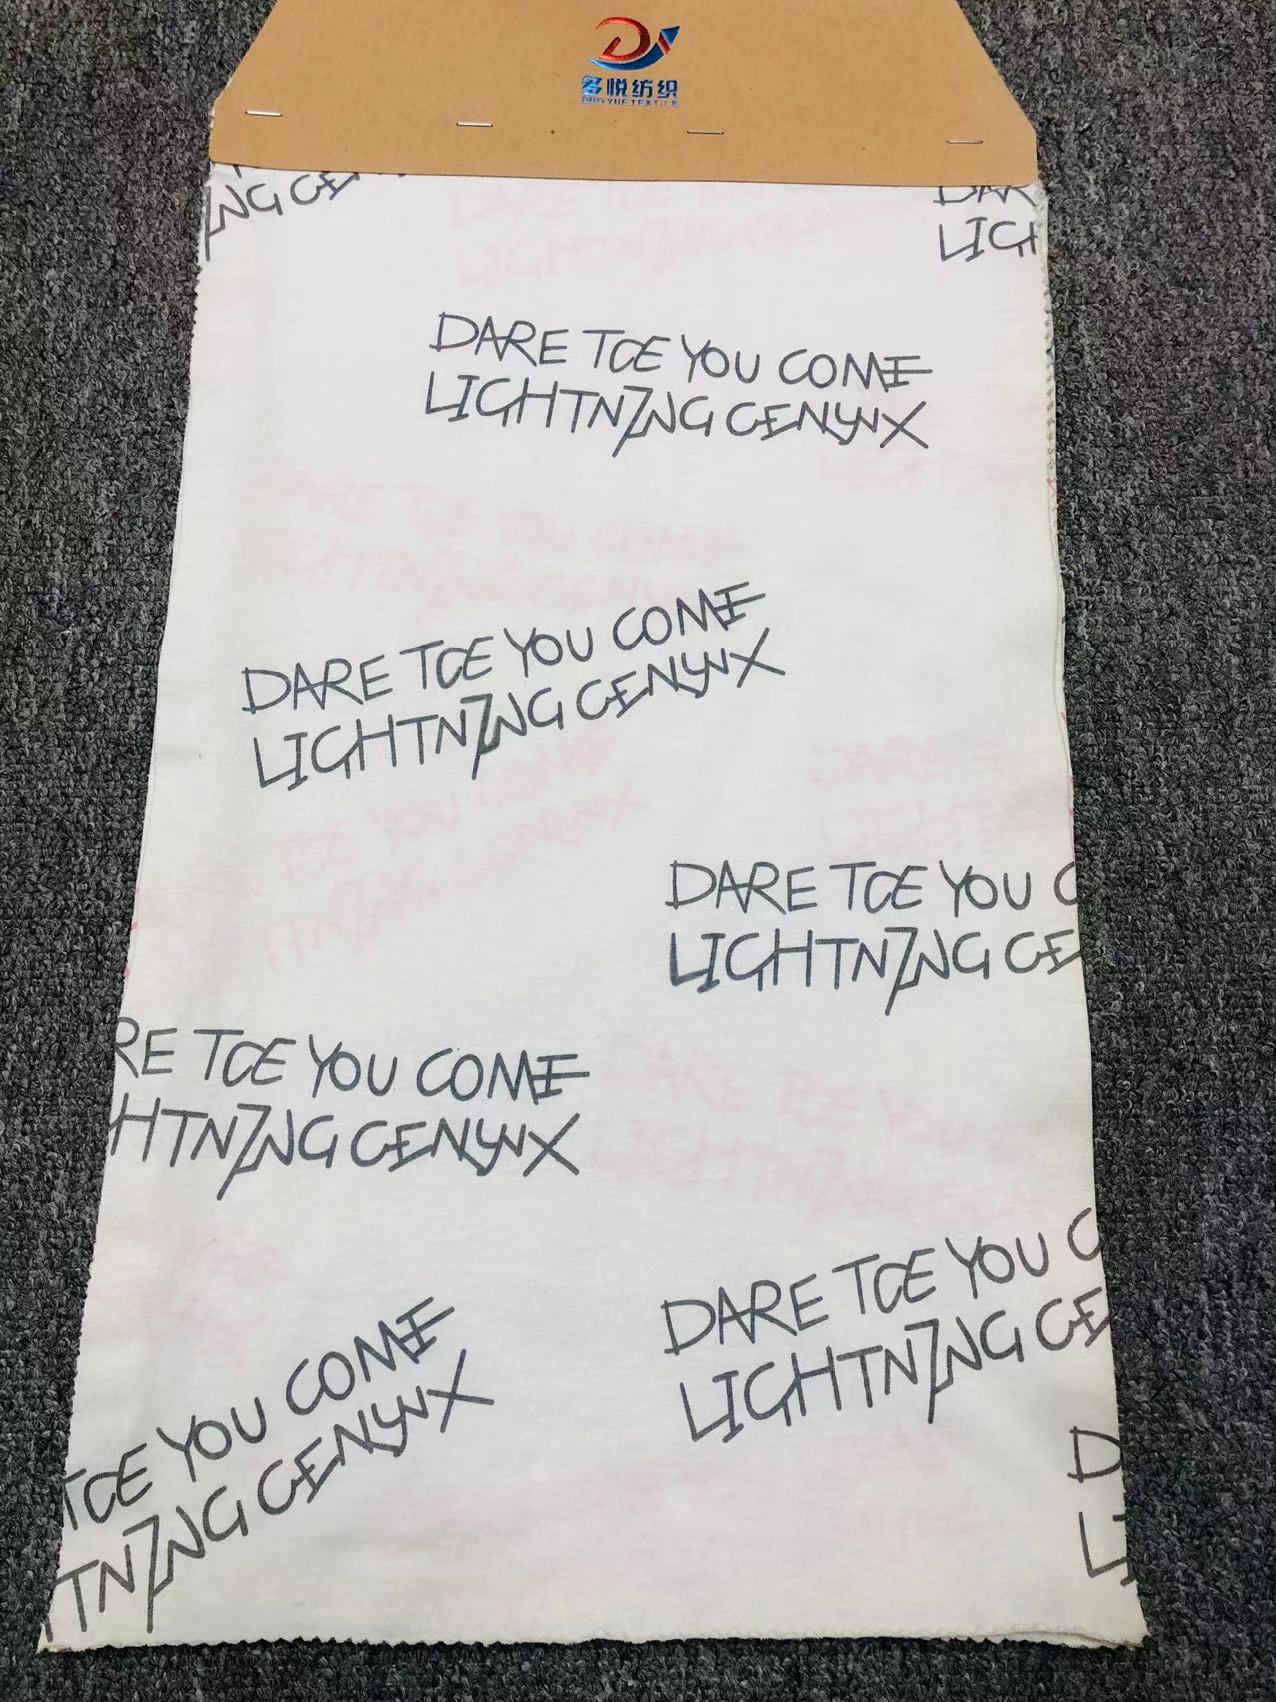 多悦纺织
DUO YUE TEXTILE
NG CE
DAR
LIGH
DARE TCE YOU COME
LIGHTNING CENYNX
DARE TCE YOU COME
LIGHTNING CENYNX
DARE TCE YOU C
LIGHTNING CE
RE TCE YOU COME
HTNING CENYNX
DARE TCE YOU C
LIGHTNING CE
TCE YOU COME
TNING CENYNX
D
LI